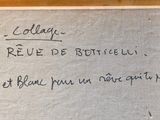 - Collage -
RÊVE DE BOTTICELLI.
et Blanc pour un rêve qui te